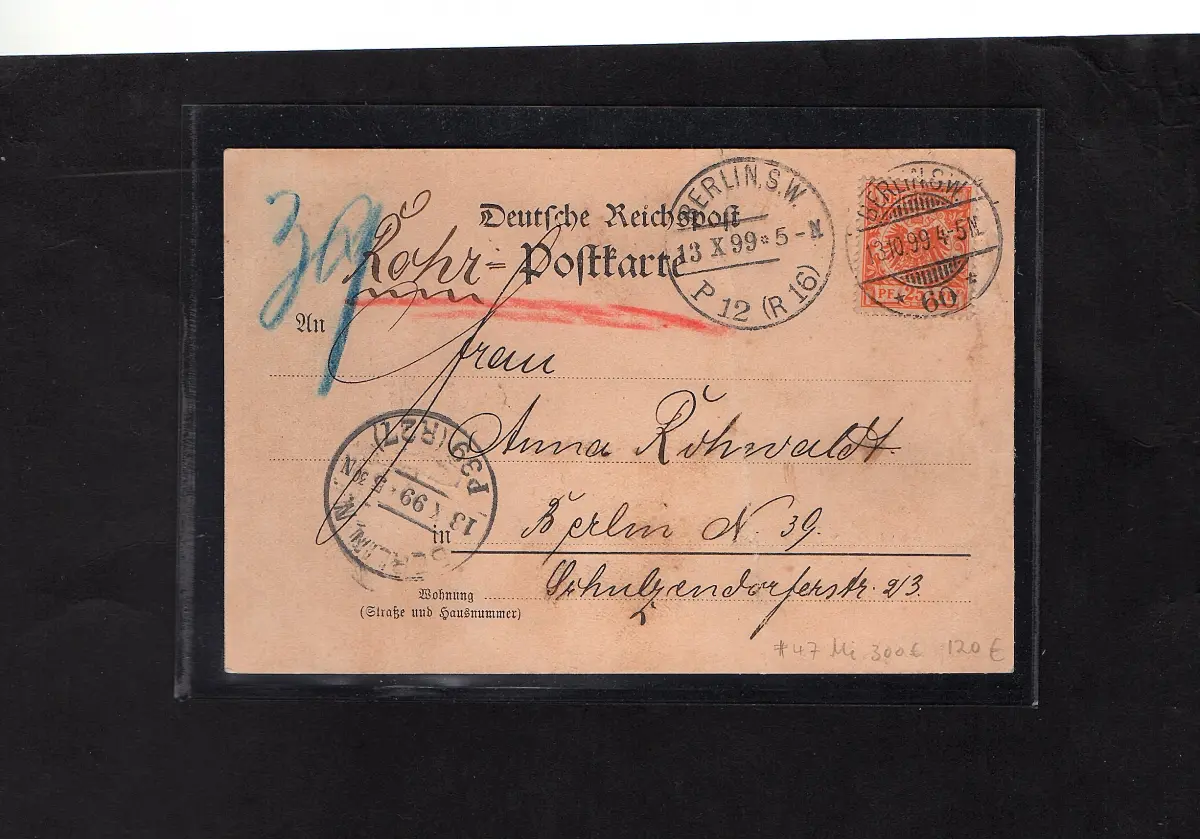 39
Deutsche Reichspost
Rohr=Postkarte
BERLIN, S.W
13 X 99*5-N
P 12 (R 16)
BERLIN S.W.
13.10.99 4-5N.
* 60 *
PF 25
An
Frau
Anna Rohwaldt
in Berlin N 39.
Wohnung
(Straße und Hausnummer)
Schulzendorferstr. 23.
P39 (R27)
13 X 99 5 30 N
BERLIN, N.
#47 Mi 300€ 120 €